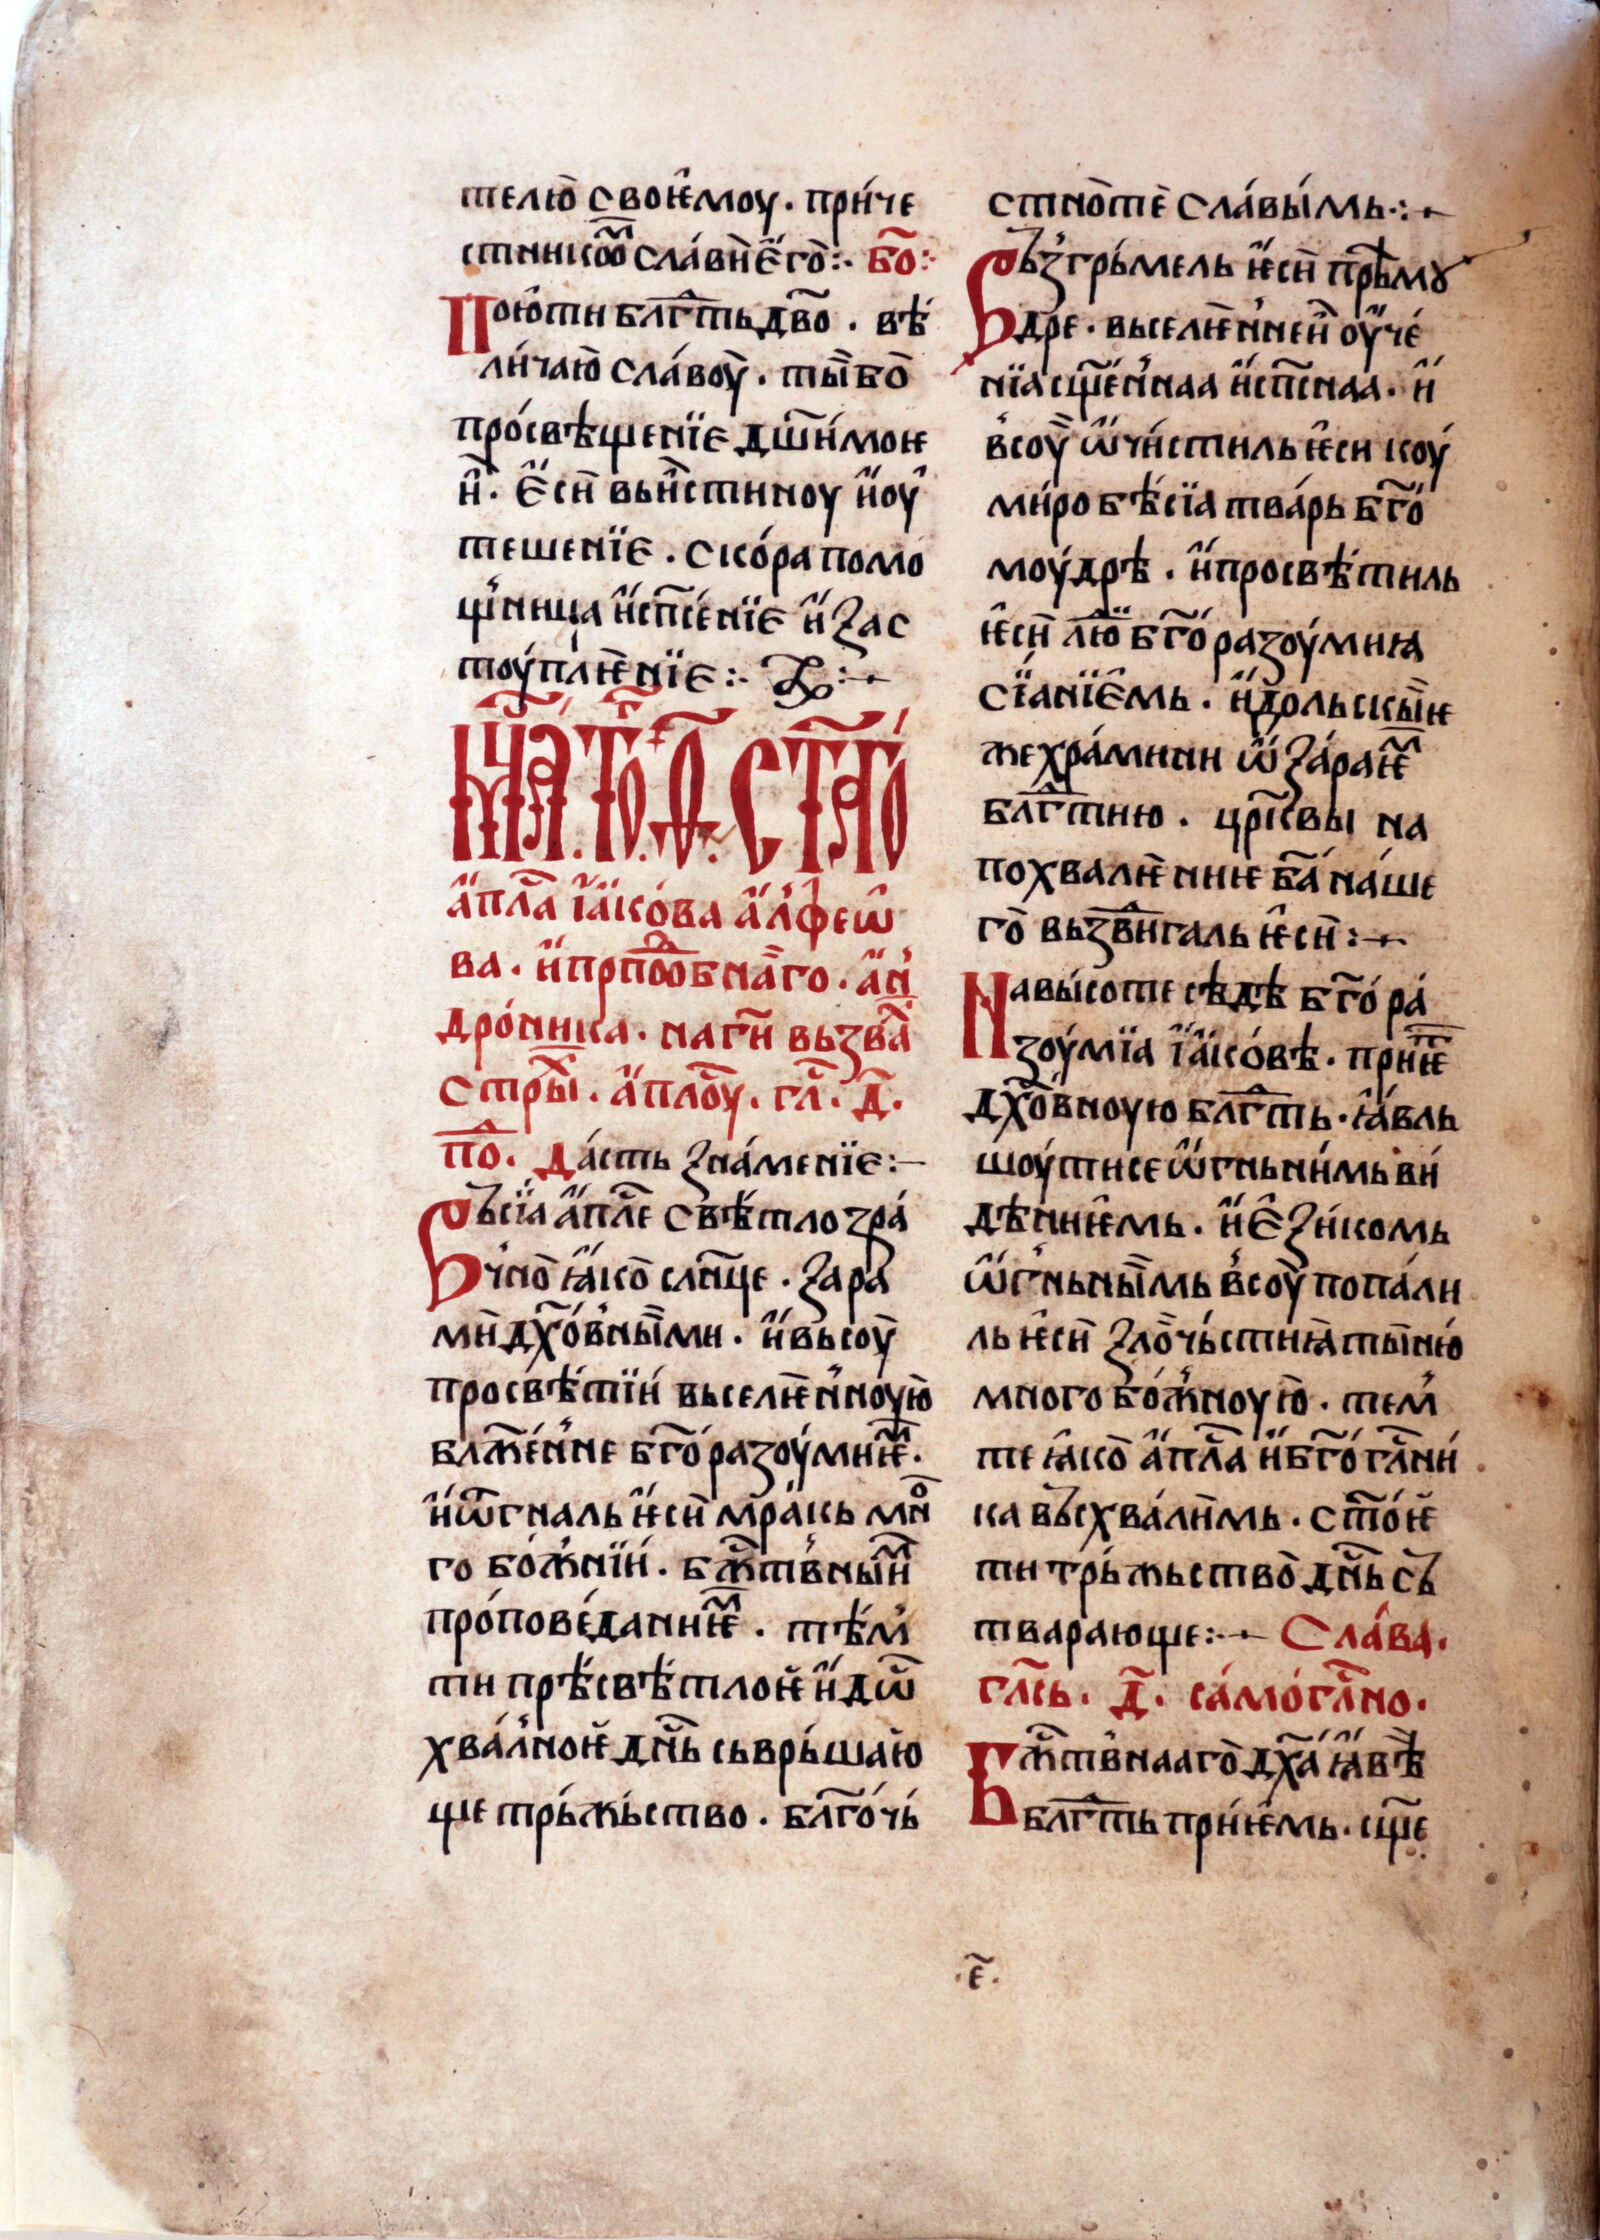 телю̀ своѥ̑моу · при́че
стникѡⷨ сла́вѝ є҆го̀ :· бо҃ :·
Пою̑ти блг҃ть дв҃о · вѣ́
ли́чаю̀ сла́воу̀ · ты̏ бо̀
про́свѣщенїє дш҃и́ моѥ
и̏ · є҆сѝ вьи́стиноу и҆ оу҆
тешенїє · ско́ра помо
щ'ница и҆ сп҃се́нїє и҆ зас
тоу́плѥ̀нїє :·
мц҃а · то · д҃ · ст҃го
а҆пл҃а і҆а҆ко́ва а҆л'феѡ̑
ва · и҆ прпⷣобна̏го · а҆н'
дро́ника · на гѝ вьзва̏
стрⷯы · а҆пло҃у · гл҃ · д҃ ·
по҃ · да́сть зна́менїє :·
Въсїа̀ а҆пл҃е свѣ́тло зра́
ч'но̀ ꙗ҆ко̀ сл҃нце · зара
мѝ дх҃о́в'ны̏ми · и҆ вьсоу̀
просвѣ́тїи́ вьселѥ̀н'ноую̀
блж҃е́н'не бг҃о́разоу́миѥⷨ ·
и҆ ѿгналь ѥ҆сѝ мра̏кь мнⷪ
го бо́ж'нїи́ · бжⷭ҇тв'ны̏иⷨ
про́пове́даниѥⷨ · тѣ́м'
ти прѣ́свѣ́тлоѥ и҆ дѡ҃
хва́л'ноѥ дн҃ь сьврь́шаю̀
ще трь́жьство · блг҃о́чь́
стно̀ тѐ сла́вы́мь ·:·
Въз'грь́мель ѥ҆сѝ прⷣѣмꙋ
дре · вьселѥ̀н'неѝ оу҆че́
нїа сщ҃е́н'наа и҆ сп҃снаа · и҆
в'соу̀ ѡ҆чи́стиль ѥ҆си коу́
ми́ро бѣ́сїа тва́рь бг҃о́
моу́дрѣ · и҆ просвѣ́тиль
ѥ҆сѝ лю̑ⷣї бг҃о́разоу́миꙗ
сїа́нїє̑мь · и҆дольскы̏ѥ
же хра́мини ѡ҆ за́раѥⷨ
блг҃тию · цр҃кви на
похвалѥ̀ниѥ ба҃ на́ше
го̀ вьзⷣвигаль ѥ҆сѝ :·
На вы́соте сѣ́дѣ бг҃о́ра́
зоу́мїа і҆а҆ко́вѣ · приѥⷨ
дх҃о́вноую блг҃ть · ꙗ҆вль
шоу́ тисе ѡ҆гньни́мь ви́
дѣ́ниѥ̑мь · и҆ є҆зи́комь
ѡ҆г'ньны̏мь в'соу̀ попа́ли
ль ѥ҆сѝ зло̀чь́стиꙗ̀ ты̏ню́
много бо́ж'ноую̀ · тем'
те ꙗ҆ко̀ а҆пл҃а и҆ бг҃о́гл҃ни́
ка въсхва́лѝмь · ст҃о́ѥ
ти трь́жьство̀ дн҃ь съ́
тварающе :· Сла́ва ·
гла҃сь · д҃ · са́мо́гл҃но ·
Бжⷭ҇тв'нааго̀ дх҃а́ ꙗ҆вѣ̏
блг҃ть прѝѥ̑мь · сщ҃е
· є҃ ·